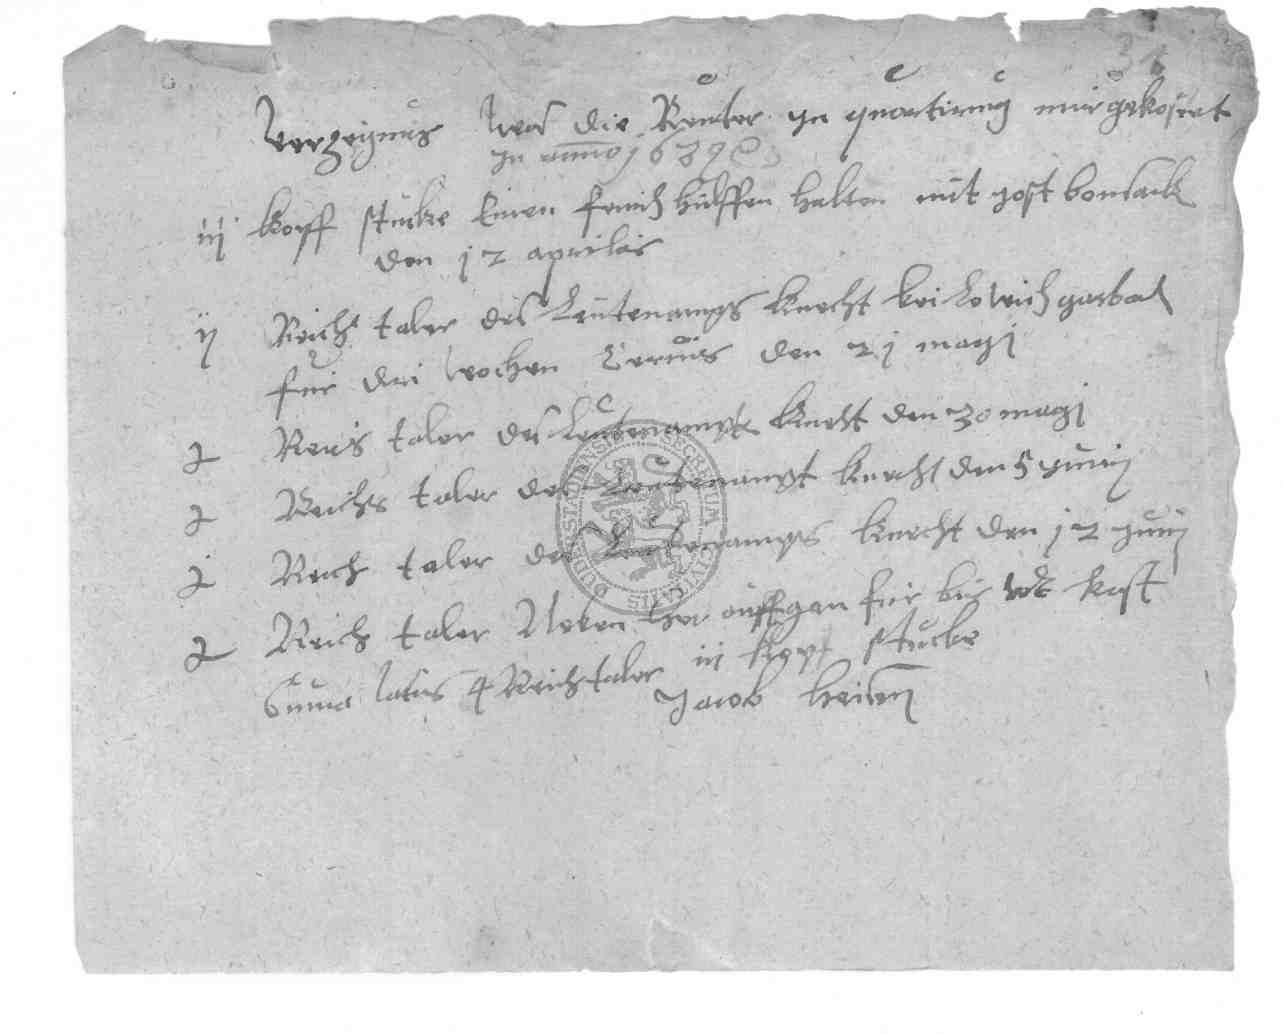 34
Verzeignus was die Reuter yn quartirung mir gekostet
Jn anno 1639
iij kopff stucke Einen hülffen halten mit jost bonsack
den 12 aprilis
ij Reichs taler des Leutenamps knecht bei
für dri wochen den 21 mayi
1 Reichs taler des Leutenampts knecht den 30 mayi
1 Reichs taler des Leutenampt knecht den 5 yunij
1 Reichs taler des Leutenamps knecht den 12 yunij
1 Reichs taler Neben her auffgan für bir kost
Suma latus 4 Reichstaler iij kopf stucke
Jacob
DUDERSTADENSIS SECRETUM CIVITATIS